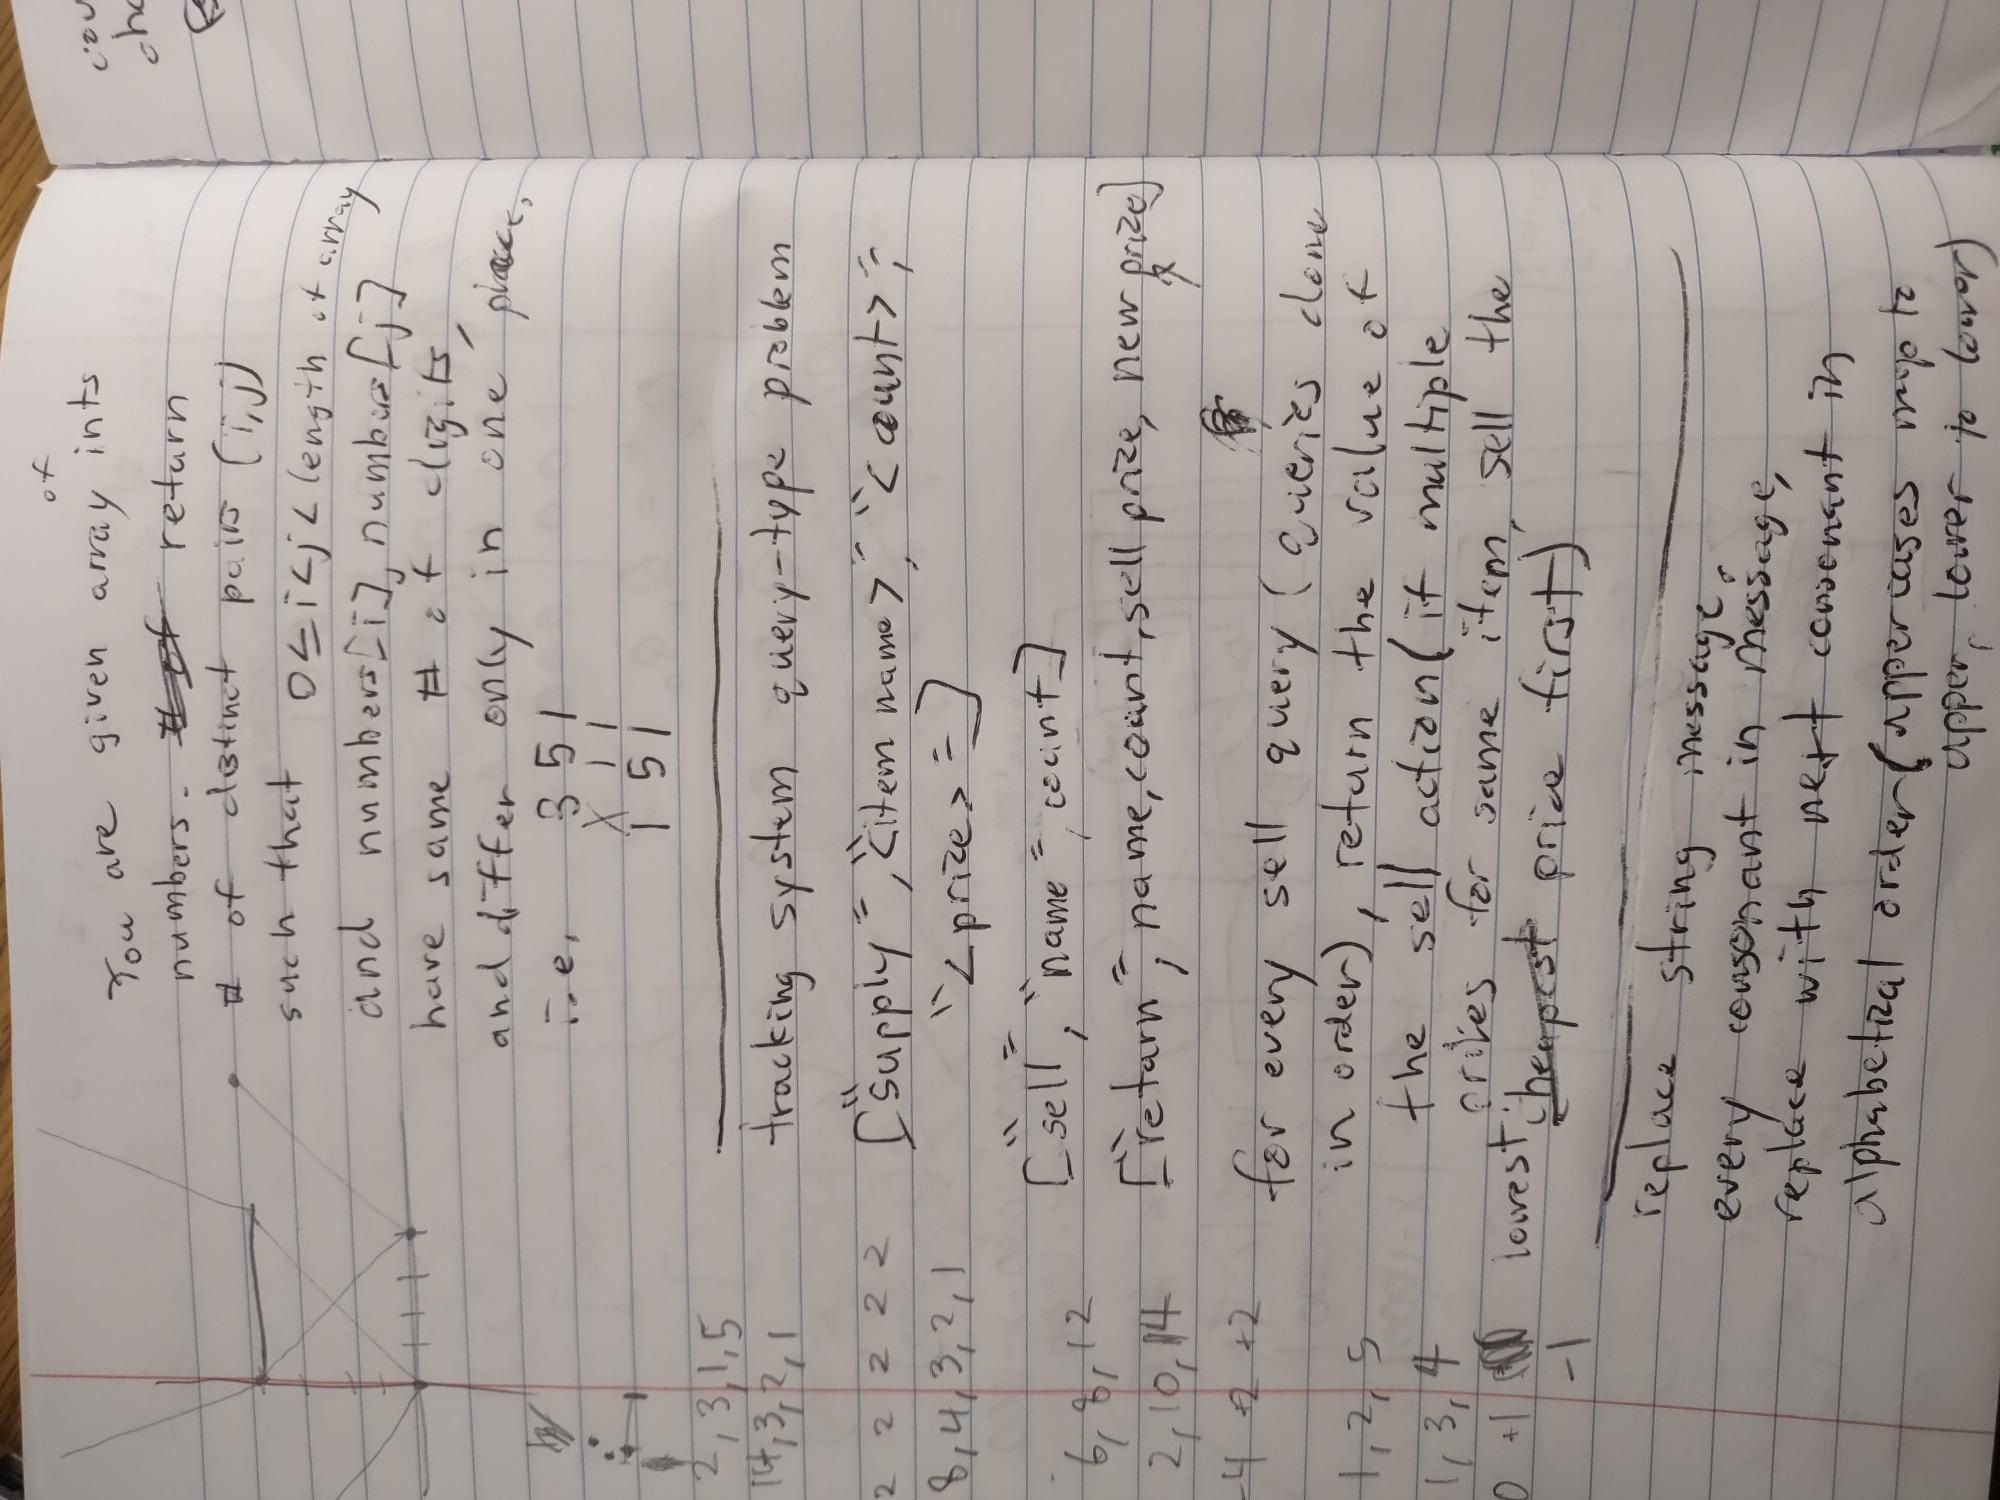 of
You are given array ints
numbers. return
# of distinct pairs (i,j)
such that 0≤i<j<length of array
and numbers[i], numbers[j]
have same # of digits,
and differ only in one place.
i.e. 351
X 11
151
2,3,1,5
14,3,2,1
tracking system query-type problem
2 2 2 2 2
["supply", "<item name>", "<count>",
8,4,3,2,1
"<prize>"]
["sell", "name", count]
6,8,12
["return", name, count, sell prize, new prize]
2,10,14
-4 +2 +2
for every sell query (queries done
in order), return the value of
1,2,5
the sell action (if multiple
1,3,4
prizes for same item, sell the
0 +1
lowest cheapest price first)
-1
replace string message.
every consonant in message,
replace with next consonant in
alphabetical order (uppercases map to
upper, lower to lower)
cou
cha